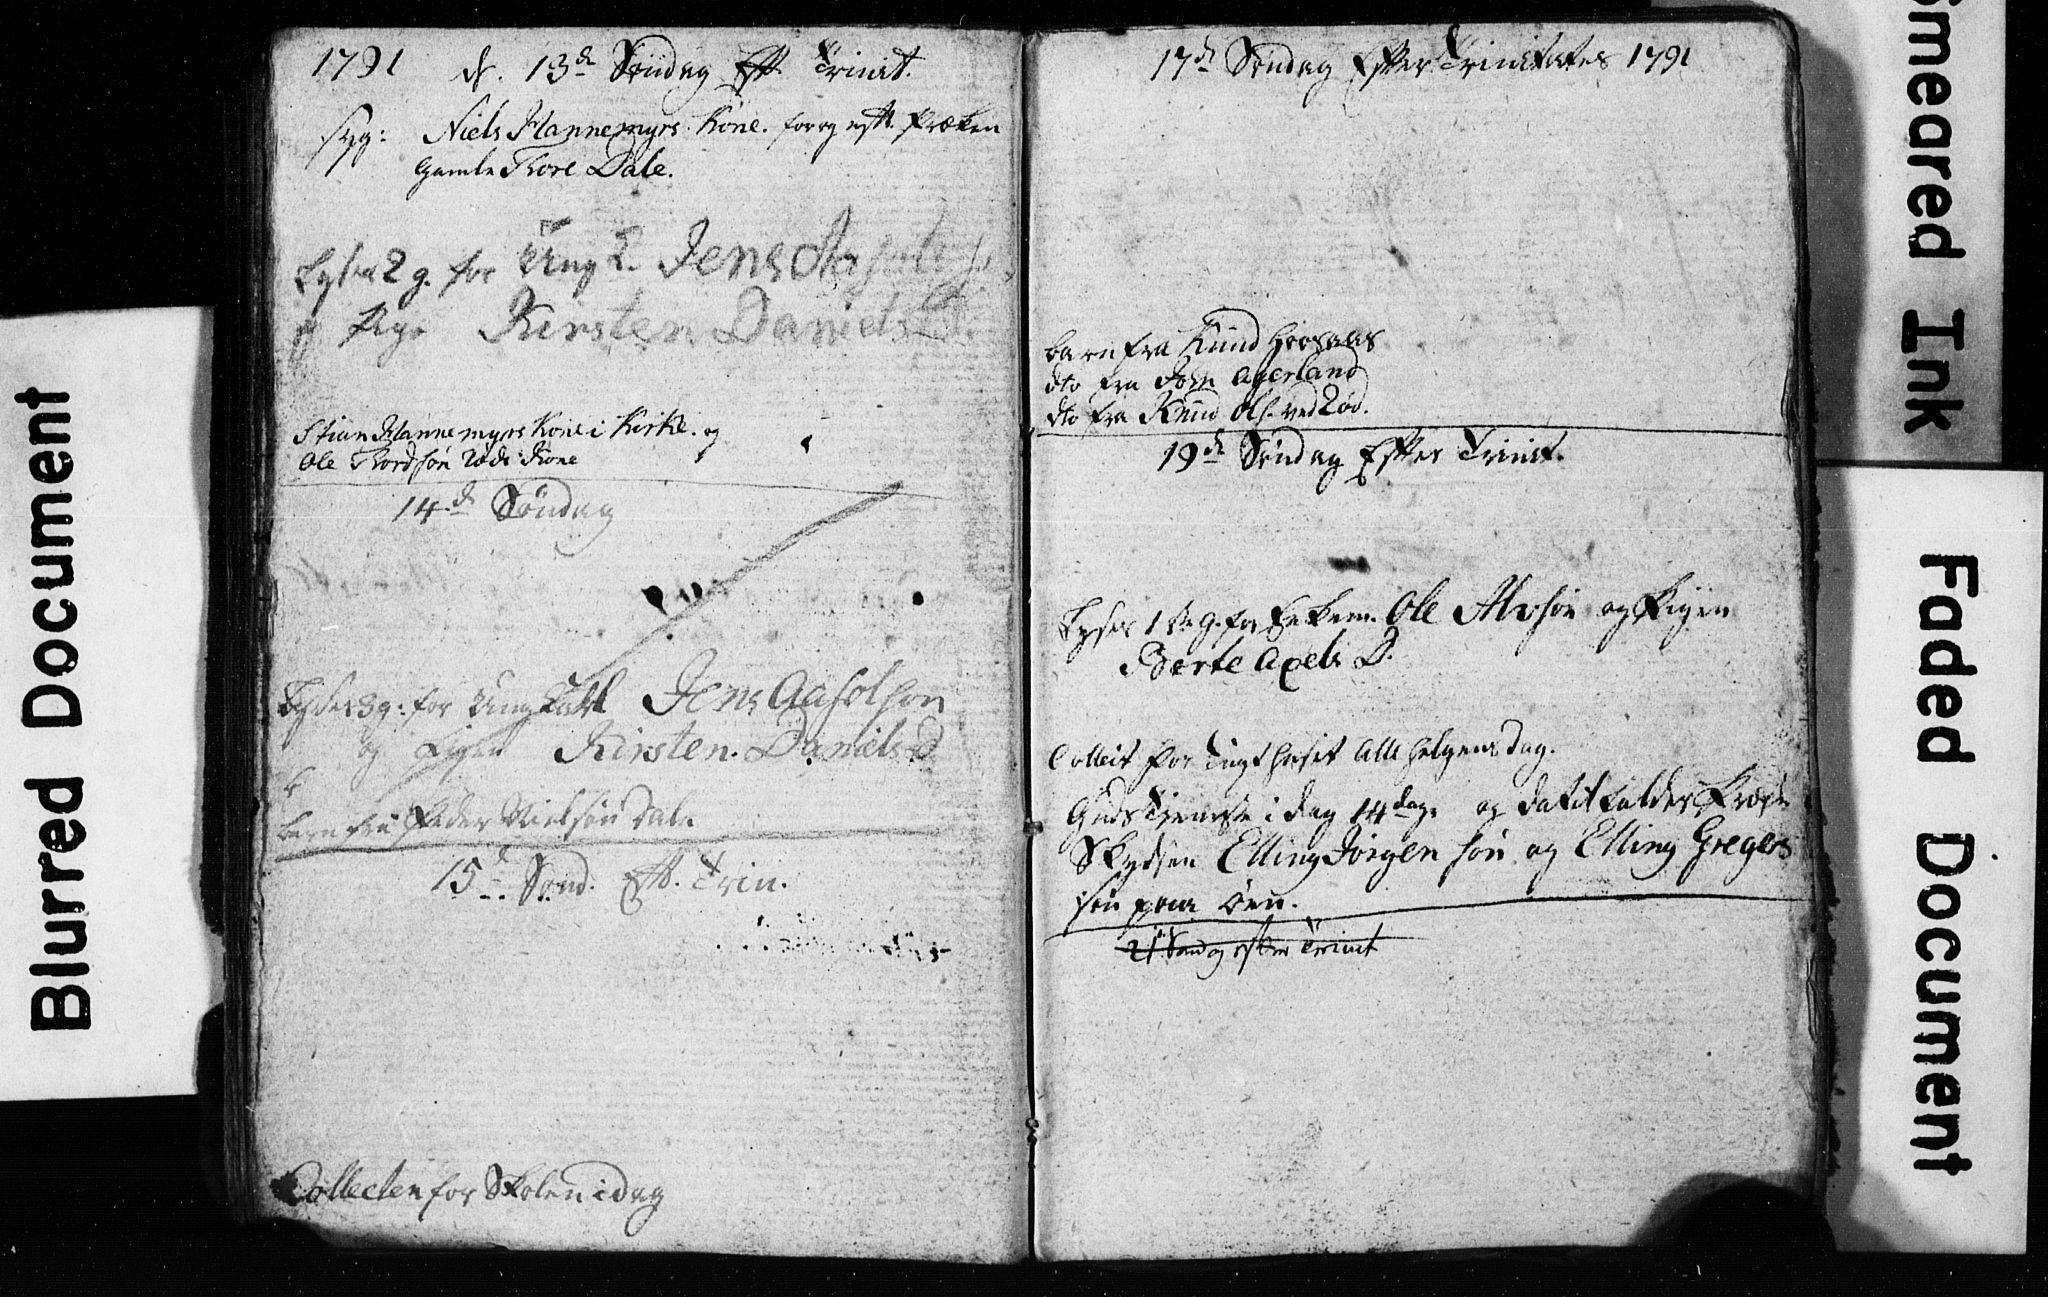 1791 d. 13de Søndag Eft. Trinit.
syg: Niels Hannemyrs Kone. for og eft. Præken
gamle Tore Dale.
Lyses 2 g. for Ung K. Jens Aasols
og Pige Kirsten Daniels D.
Stian Hannemyrs Kone i Kirke. og
Ole Tordsøn Røds Kone
14de Søndag
Lyses 3 g: for Ung Karl Jens Aasolsøn
og Pigen Kirsten Daniels D
barn fra Peder Nielsøn Dal.
15de Sønd. Eft. Trin.
Collecten for Skolen i dag
17de Søndag Efter Trinitates 1791
barn fra Knud
dto fra John Agerland
dto fra Knud Ols. ved Rød.
19de Søndag Efter Trinit.
Lyses 1 te G. for Enkem. Ole Alvsøn og Pigen
Berte Axels D.
Collect for Tugthuset Alle helgens dag.
Guds Tjeneste i dag 14 dage og da tiltaldes
Skydsen Elling Jørgensøn og Elling Gregers
søn paa Øen.
21 Søndag efter Trinit
Blurred Document
Smeared Ink
Faded Document